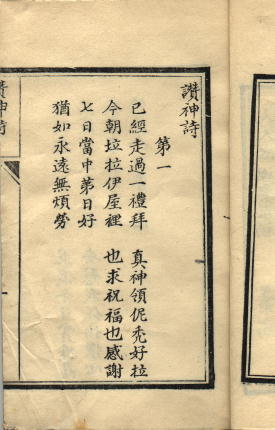 讚神詩
第一
已經走過一禮拜　真神領伲禿好拉
今朝垃拉伊屋裡　也求祝福也感謝
七日當中第日好
猶如永遠無煩勞
讚神詩